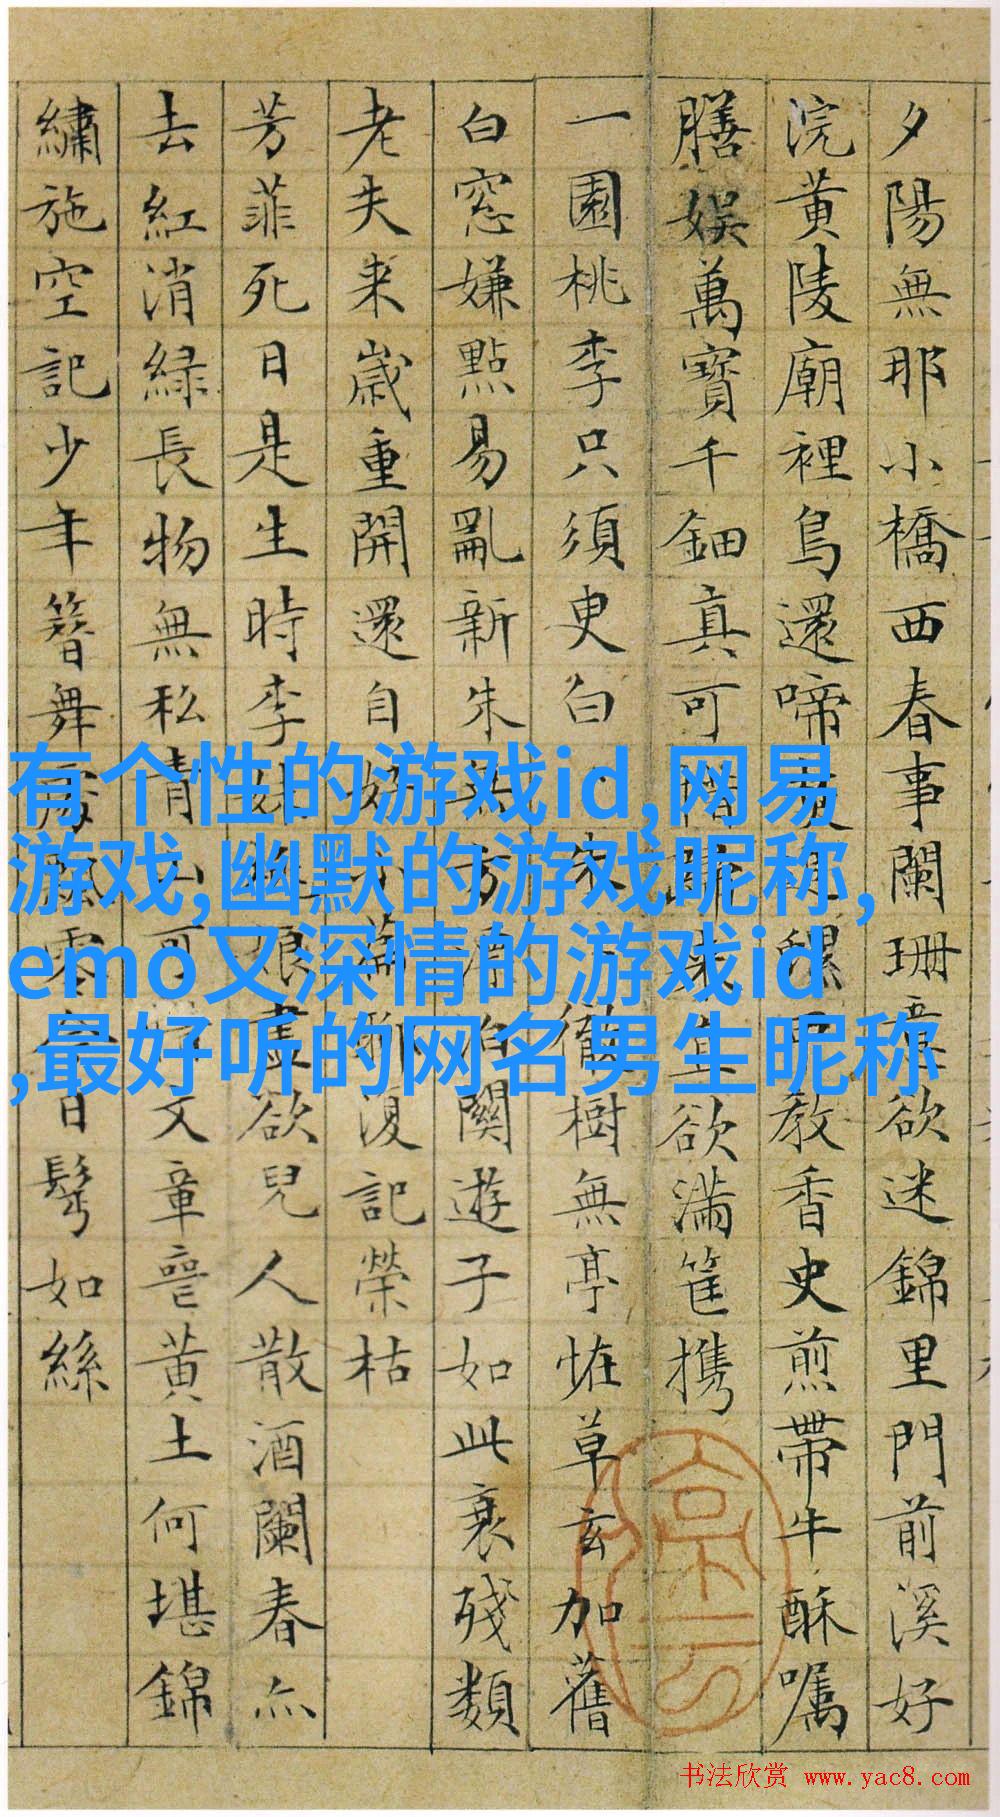 夕陽無那小橋西春事闌珊意欲迷錦里門前溪好
浣黃陵廟裡鳥還啼螺教香史煎帶牛酥嘱
膳娛萬寶千鈿真可惜歸來直欲滿筐攜
一園桃李只須臾白朱徹樹無亭恠草玄加舊
白窓嫌點易亂新朱無漂泊關遊子如此衰殘類
老夫来歲重開還自好小篇聊復記榮枯
芳菲死日是生時李妹娘盡欲兒人散酒闌春亦
去紅消緑長物無私青山可文章黃土何堪錦
繡施空記少年簪舞處飄零今日鬢如絲
有个性的游戏id,网易
游戏,幽默的游戏昵称,
emo又深情的游戏id
,最好听的网名男生昵称
书法欣赏 www.yac8.com